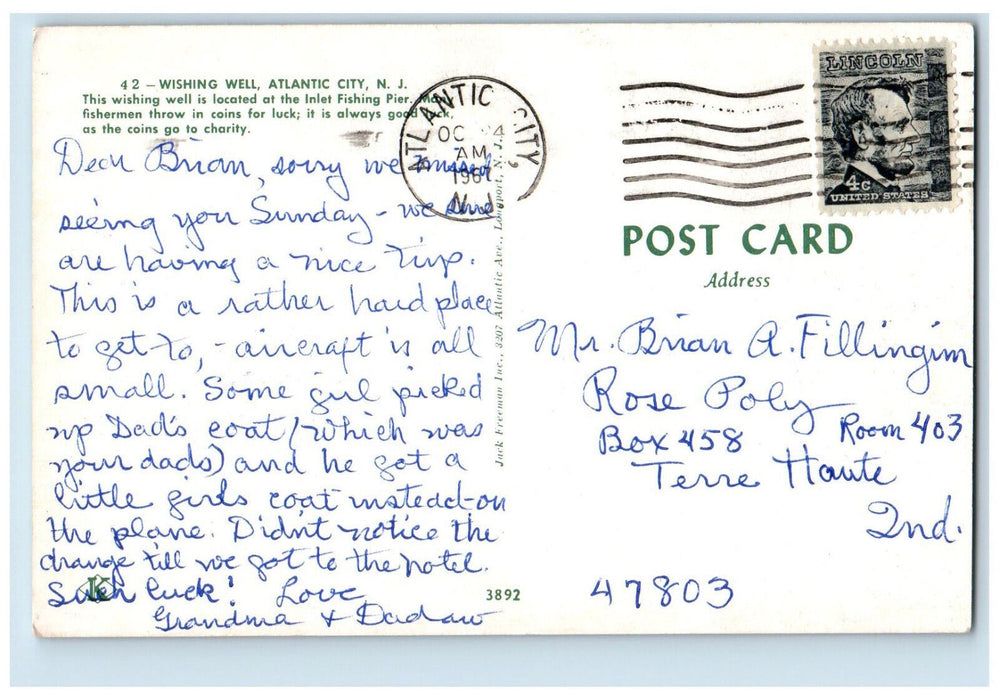 42 — WISHING WELL, ATLANTIC CITY, N. J.
This wishing well is located at the Inlet Fishing Pier. Many
fishermen throw in coins for luck; it is always good luck,
as the coins go to charity.
Dear Brian, sorry we missed
seeing you Sunday - we sure
are having a nice trip.
This is a rather hard place
to get to, - aircraft is all
small. Some girl picked
up Dad's coat (which was
your dads) and he got a
little girls coat instead-on
the plane. Didn't notice the
change till we got to the hotel.
Such luck! Love
Grandma & Dadaw
K
3892
Jack Freeman Inc., 3207 Atlantic Ave., Longport, N. J.
ATLANTIC CITY
OC 4
AM
196
N.J.
LINCOLN
4c
UNITED STATES
POST CARD
Address
Mr. Brian A. Fillingim
Rose Poly
Box 458 Room 403
Terre Haute
Ind.
47803